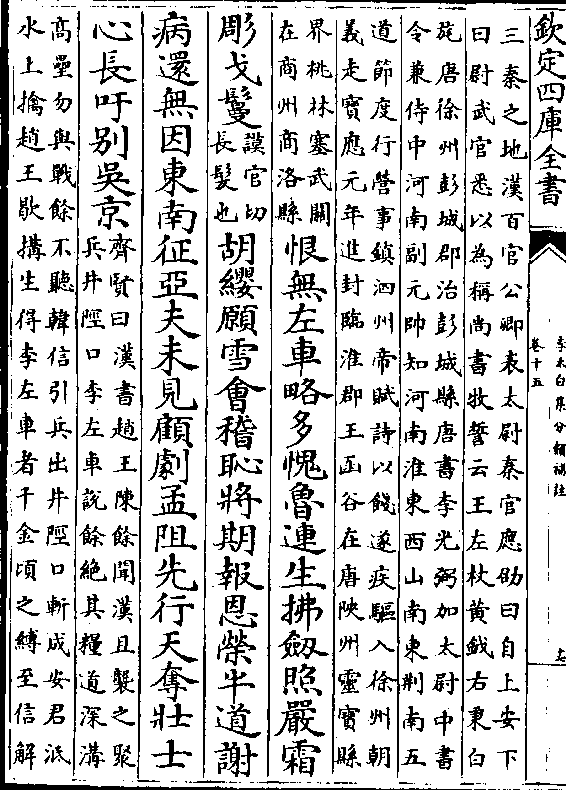 欽定四庫全書
李太白集分類補註
卷十五
三秦之地漢百官公卿表太尉秦官應劭曰自上安下
曰尉武官悉以為稱尚書牧誓云王左杖黄鉞右秉白
旄唐徐州彭城郡治彭城縣唐書李光弼加太尉中書
令兼侍中河南副元帥知河南淮東西山南東荆南五
道節度行營事鎮泗州帝賦詩以餞遂疾驅入徐州朝
義走寳應元年進封臨淮郡王函谷在唐陜州靈寳縣
界桃林塞武關
在商州商洛縣
恨無左車略多愧魯連生拂劔照嚴霜
彫戈鬘
謨官切
長髮也
胡纓願雪會稽恥將期報恩榮半道謝
病還無因東南征亞夫未見顧劇孟阻先行天奪壯士
心長吁别吳京
齊賢曰漢書趙王陳餘聞漢且襲之聚
兵井陘口李左車説餘絶其糧道深溝
髙壘勿與戰餘不聽韓信引兵出井陘口斬成安君泜
水上擒趙王歇搆生得李左車者千金頃之縛至信解